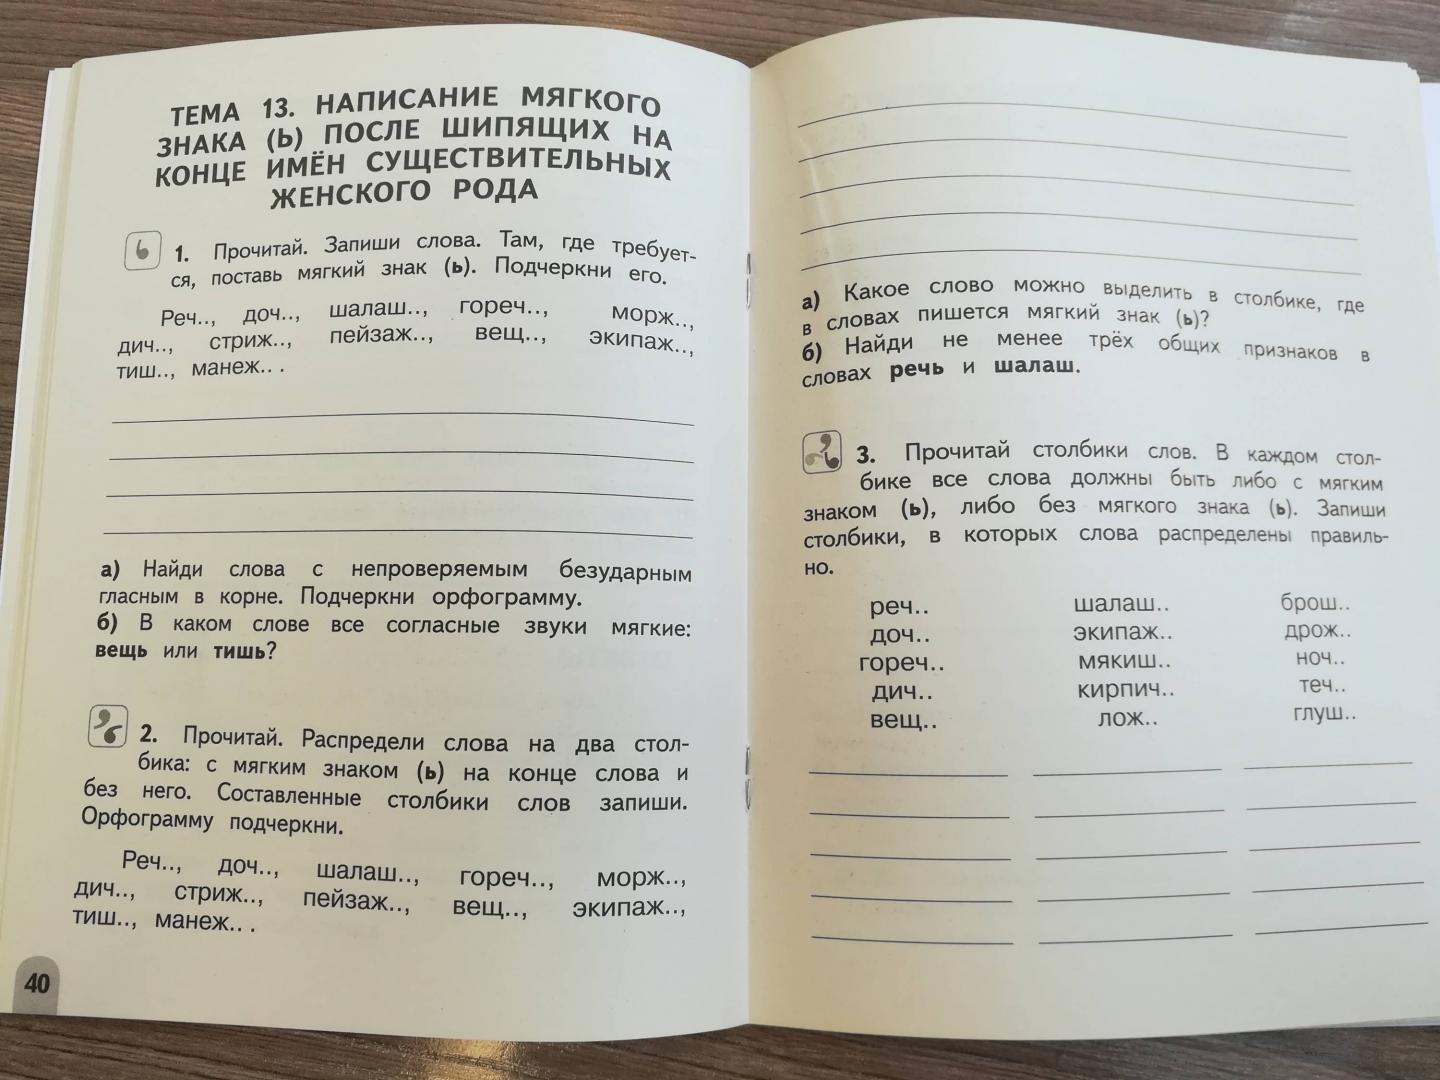 ТЕМА 13. НАПИСАНИЕ МЯГКОГО
ЗНАКА (Ь) ПОСЛЕ ШИПЯЩИХ НА
КОНЦЕ ИМЁН СУЩЕСТВИТЕЛЬНЫХ
ЖЕНСКОГО РОДА
1. Прочитай. Запиши слова. Там, где требует-
ся, поставь мягкий знак (ь). Подчеркни его.
Реч.., доч.., шалаш.., гореч.., морж..,
дич.., стриж.., пейзаж.., вещ.., экипаж..,
тиш.., манеж.. .
а) Найди слова с непроверяемым безударным
гласным в корне. Подчеркни орфограмму.
б) В каком слове все согласные звуки мягкие:
вещь или тишь?
2. Прочитай. Распредели слова на два стол-
бика: с мягким знаком (ь) на конце слова и
без него. Составленные столбики слов запиши.
Орфограмму подчеркни.
Реч.., доч.., шалаш.., гореч.., морж..,
дич.., стриж.., пейзаж.., вещ.., экипаж..,
тиш.., манеж.. .
40
а) Какое слово можно выделить в столбике, где
в словах пишется мягкий знак (ь)?
б) Найди не менее трёх общих признаков в
словах речь и шалаш.
3. Прочитай столбики слов. В каждом стол-
бике все слова должны быть либо с мягким
знаком (ь), либо без мягкого знака (ь). Запиши
столбики, в которых слова распределены правиль-
но.
реч.. шалаш.. брош..
доч.. экипаж.. дрож..
гореч.. мякиш.. ноч..
дич.. кирпич.. теч..
вещ.. лож.. глуш..